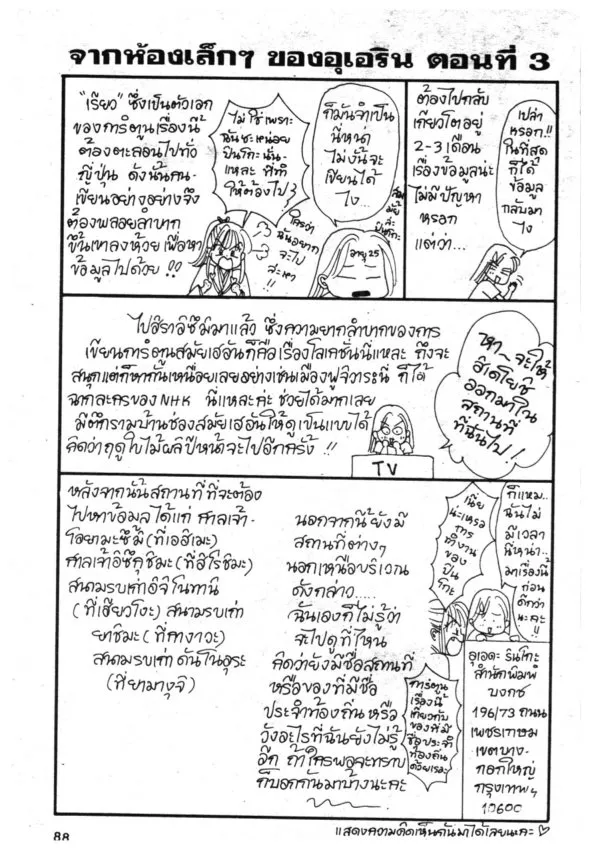 จากห้องเล็กๆ ของอุเอริน ตอนที่ 3
"เรียว" ซึ่งเป็นตัวเอก
ของการ์ตูนเรื่องนี้
ต้องตะลอนไปทั่ว
ญี่ปุ่น ดังนั้นคน-
เขียนอย่างอย่างจึง
ต้องพลอยลำบาก
ขึ้นเขาลงห้วยเพื่อหา
ข้อมูลไปด้วย !!
ไม่ใช่เพราะ
ฉันซะหน่อย
ปินโกะนั่น-
แหละ ที่ทำ
ให้ต้องไป
ใครว่า
ฉันอยาก
จะไป
ล่ะหา
!!
ก็มันจำเป็น
นี่หน่า
ไม่งั้นจะ
เขียนได้
ไง...
อายุ 25
ต้องไปกลับ
เกียวโตอยู่
2-3 เดือน
เรื่องข้อมูลน่ะ
ไม่มีปัญหา
หรอก
แต่ว่า...
เปล่า
หรอก!!
ในที่สุด
ก็ได้
ข้อมูล
กลับมา
ไง
ไปฮิราอิซึมิมาแล้ว ซึ่งความยากลำบากของการ
เขียนการ์ตูนสมัยเฮอันก็คือเรื่องโลเกชั่นนี่แหละ ถึงจะ
สนุกแต่ก็หากันเหนื่อยเลยอย่างเช่นเมืองฟูจิวาระนี่ ก็ได้
ฉากละครของ NHK นี่แหละค่ะ ช่วยได้มากเลย
มีตึกรามบ้านช่องสมัยเฮอันให้ดูเป็นแบบได้
คิดว่าฤดูใบไม้ผลิปีหน้าจะไปอีกครั้ง !!
TV
หา~จะให้
ฮิเดโยชิ
ออกมาใน
สถานที่
ที่ฉันไป!
หลังจากนั้นสถานที่ที่จะต้อง
ไปหาข้อมูลได้แก่ ศาลเจ้า-
โอยามะซึมิ (ที่เอฮิเมะ)
ศาลเจ้าอิซึกุชิมะ (ที่ฮิโรชิมะ)
สนามรบเก่าอิจิโนทานิ
(ที่เฮียวโงะ) สนามรบเก่า
ยาชิมะ (ที่คางาวะ)
สนามรบเก่า ดันโนอุระ
(ที่ยามางุจิ)
นอกจากนี้ยังมี
สถานที่ต่างๆ
นอกเหนือบริเวณ
ดังกล่าว.....
ฉันเองก็ไม่รู้ว่า
จะไปดูที่ไหน
คิดว่ายังมีชื่อสถานที่
หรือของที่มีชื่อ
ประจำท้องถิ่น หรือ
วังอะไรที่ฉันยังไม่รู้
อีก ถ้าใครพอจะทราบ
ก็บอกกันมาบ้างนะคะ
เนี่ย
น่ะเหรอ
การ
ทำงาน
ของ
ปิน
โกะ
ก็แหม..
ฉันไม่
มีเวลา
นี่หน่า..
มาเรื่องนี้
ก่อน
ดีกว่า
นะคะ
!!
การ์ตูน
เรื่องนี้
เกี่ยวกับ
ของที่มี
ชื่อประจำ
ท้องถิ่น
ด้วยเรอะ
อุเอดะ รินโกะ
สำนักพิมพ์
บงกช
196/73 ถนน
เพชรเกษม
เขตบาง-
กอกใหญ่
กรุงเทพฯ
10600
แสดงความคิดเห็นกันมาได้เลยนะคะ ♡
88